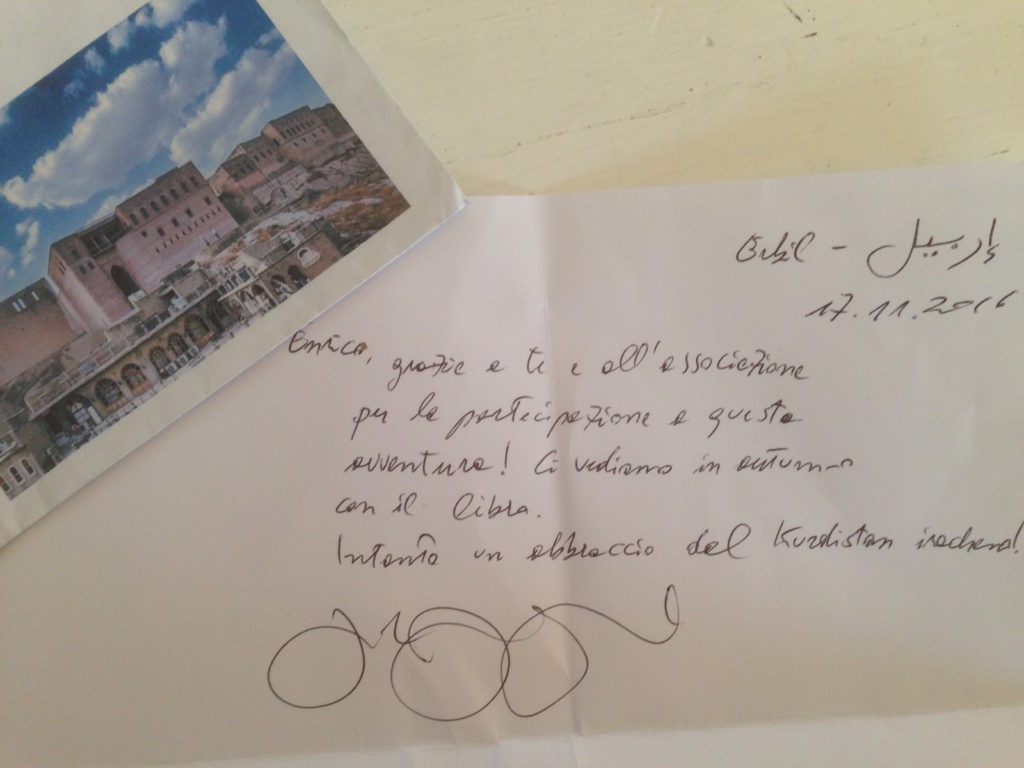 Erbil - إاربيل
17.11.2016
Enrico,
grazie a te e all'associazione
per la partecipazione a questa
avventura! Ci vediamo in autunno
con il libro.
Intanto un abbraccio dal Kurdistan iracheno!